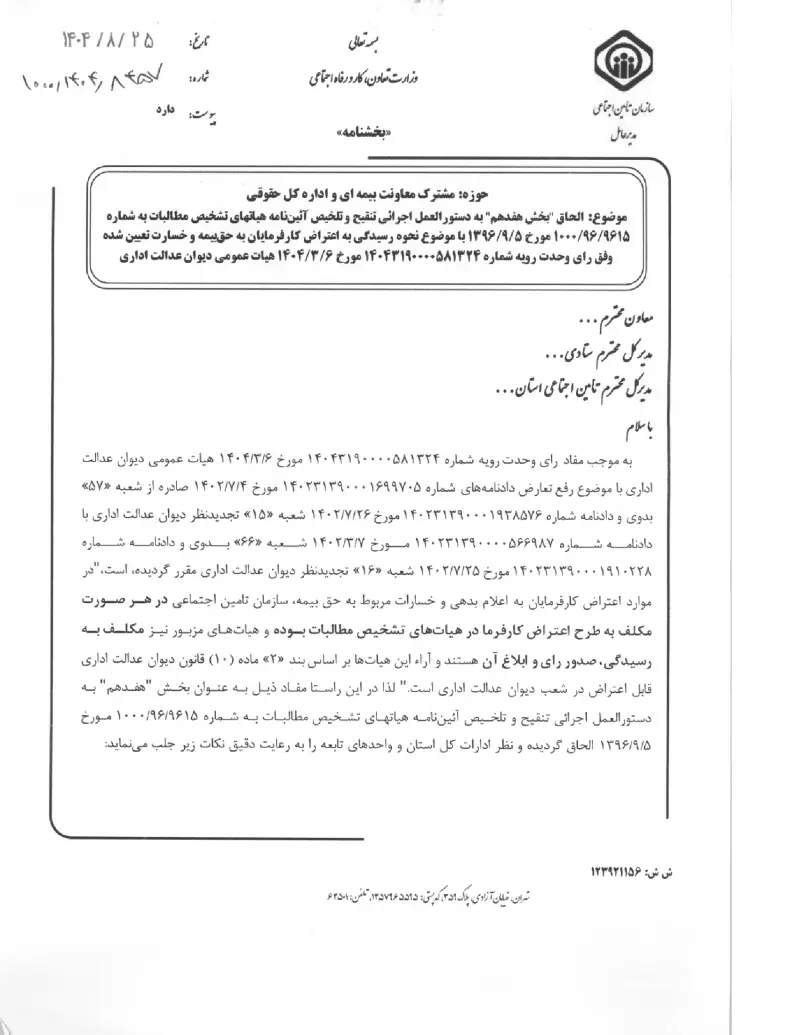 بسمه تعالی
وزارت تعاون، کار و رفاه اجتماعی
«بخشنامه»
تاریخ: ۱۴۰۴/۸/۲۵
شماره: ۱۰۰۰/۱۴۰۴/۸۴۵۷
پیوست: دارد
سازمان تأمین اجتماعی
مدیرعامل
حوزه: مشترک معاونت بیمه ای و اداره کل حقوقی
موضوع: الحاق "بخش هفدهم" به دستورالعمل اجرائی تنقیح و تلخیص آئین‌نامه هیاتهای تشخیص مطالبات به شماره
۱۰۰۰/۹۶/۹۶۱۵ مورخ ۱۳۹۶/۹/۵ با موضوع نحوه رسیدگی به اعتراض کارفرمایان به حق‌بیمه و خسارت تعیین شده
وفق رای وحدت رویه شماره ۱۴۰۴۳۱۹۰۰۰۰۵۸۱۳۲۴ مورخ ۱۴۰۴/۳/۶ هیات عمومی دیوان عدالت اداری
معاون محترم ...
مدیرکل محترم ستادی...
مدیرکل محترم تأمین اجتماعی استان...
با سلام
به موجب مفاد رای وحدت رویه شماره ۱۴۰۴۳۱۹۰۰۰۰۵۸۱۳۲۴ مورخ ۱۴۰۴/۳/۶ هیات عمومی دیوان عدالت
اداری با موضوع رفع تعارض دادنامه‌های شماره ۱۴۰۲۳۱۳۹۰۰۰۱۶۹۹۷۰۵ مورخ ۱۴۰۲/۷/۴ صادره از شعبه «۵۷»
بدوی و دادنامه شماره ۱۴۰۲۳۱۳۹۰۰۰۱۹۳۸۵۷۶ مورخ ۱۴۰۲/۷/۲۶ شعبه «۱۵» تجدیدنظر دیوان عدالت اداری با
دادنامه شماره ۱۴۰۲۳۱۳۹۰۰۰۰۵۶۶۹۸۷ مورخ ۱۴۰۲/۳/۷ شعبه «۶۶» بدوی و دادنامه شماره
۱۴۰۲۳۱۳۹۰۰۰۱۹۱۰۲۲۸ مورخ ۱۴۰۲/۷/۲۵ شعبه «۱۶» تجدیدنظر دیوان عدالت اداری مقرر گردیده، است،"در
موارد اعتراض کارفرمایان به اعلام بدهی و خسارات مربوط به حق بیمه، سازمان تامین اجتماعی در هر صورت
مکلف به طرح اعتراض کارفرما در هیات‌های تشخیص مطالبات بوده و هیات‌های مزبور نیز مکلف به
رسیدگی، صدور رای و ابلاغ آن هستند و آراء این هیات‌ها بر اساس بند «۲» ماده (۱۰) قانون دیوان عدالت اداری
قابل اعتراض در شعب دیوان عدالت اداری است." لذا در این راستا مفاد ذیل به عنوان بخش "هفدهم" به
دستورالعمل اجرائی تنقیح و تلخیص آئین‌نامه هیاتهای تشخیص مطالبات به شماره ۱۰۰۰/۹۶/۹۶۱۵ مورخ
۱۳۹۶/۹/۵ الحاق گردیده و نظر ادارات کل استان و واحدهای تابعه را به رعایت دقیق نکات زیر جلب می‌نماید:
ش ش: ۱۲۳۹۲۱۱۵۶
تهران، خیابان آزادی، پلاک ۳۵۹، کدپستی: ۱۴۵۷۹۶۵۵۹۵، تلفن: ۶۴۵۰۱